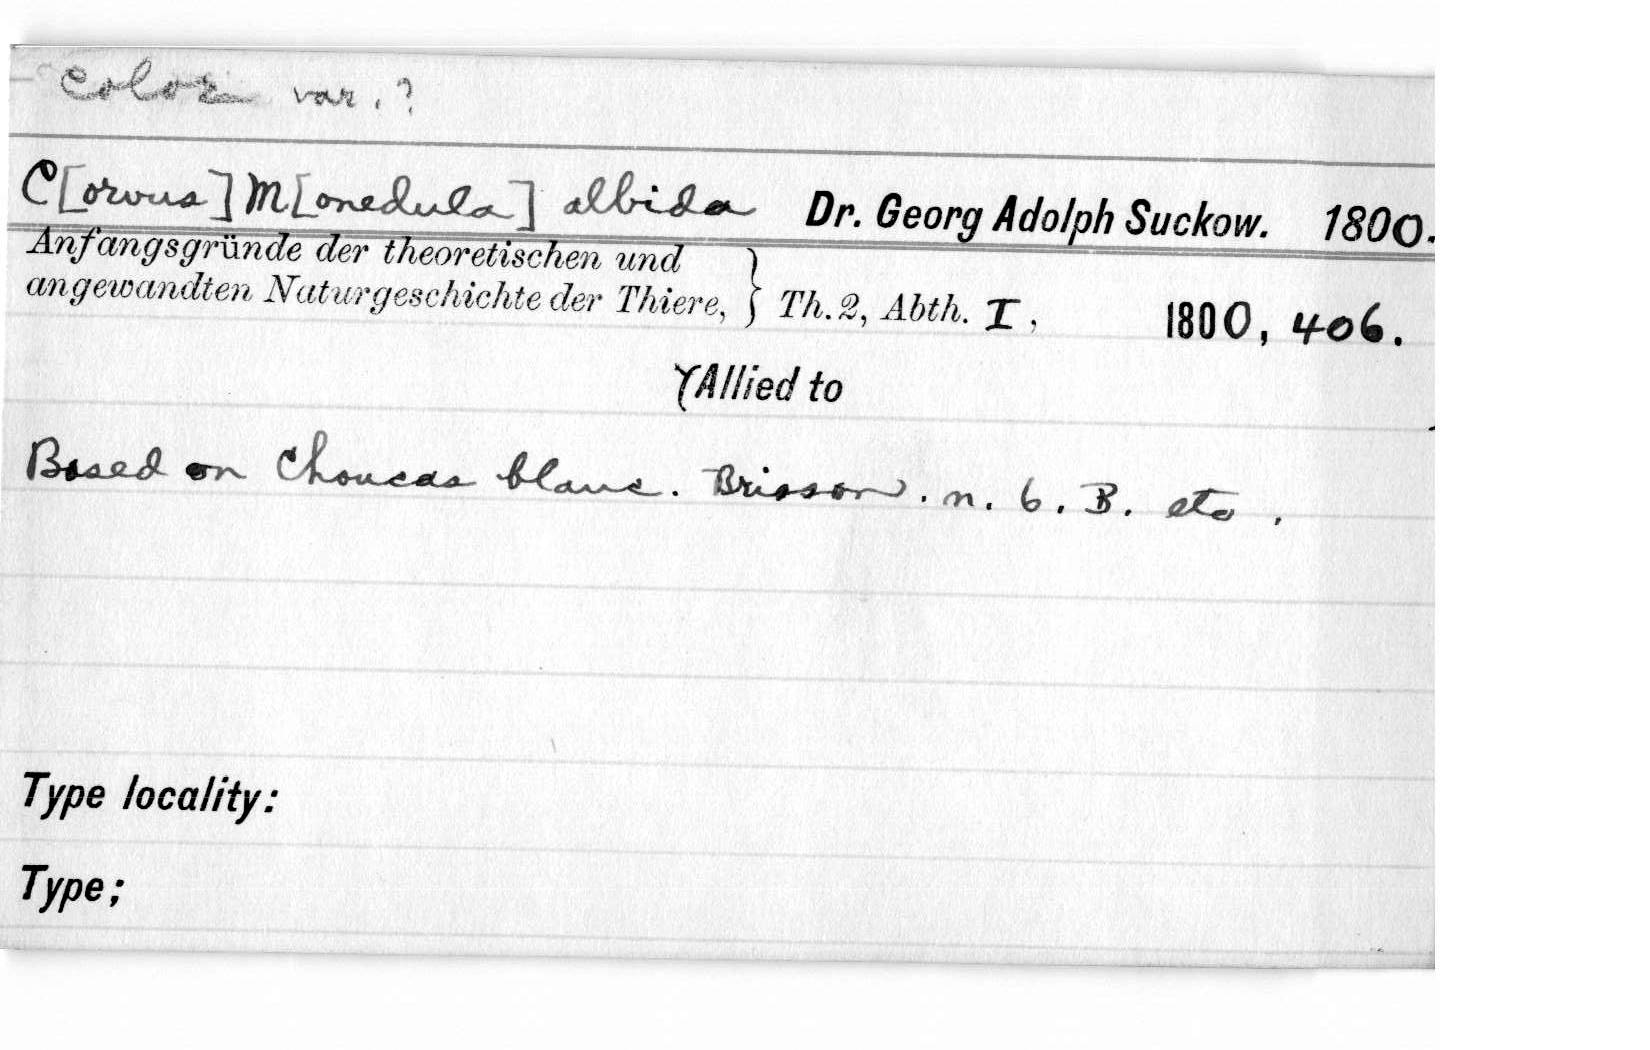 Color var.?
C[orvus] M[onedula] albida Dr. Georg Adolph Suckow. 1800.
Anfangsgründe der theoretischen und
angewandten Naturgeschichte der Thiere, } Th. 2, Abth. I, 1800, 406.
(Allied to
Based on Choucas blanc. Brisson. n. 6. B. etc.
Type locality:
Type;